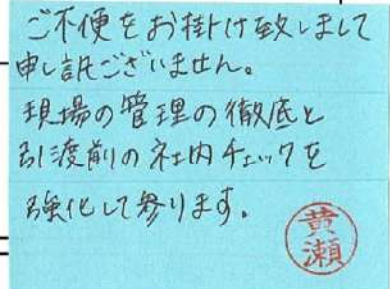 ご不便をお掛け致しまして
申し訳ございません。
現場の管理の徹底と
引渡前の社内チェックを
強化して参ります。
黄瀬